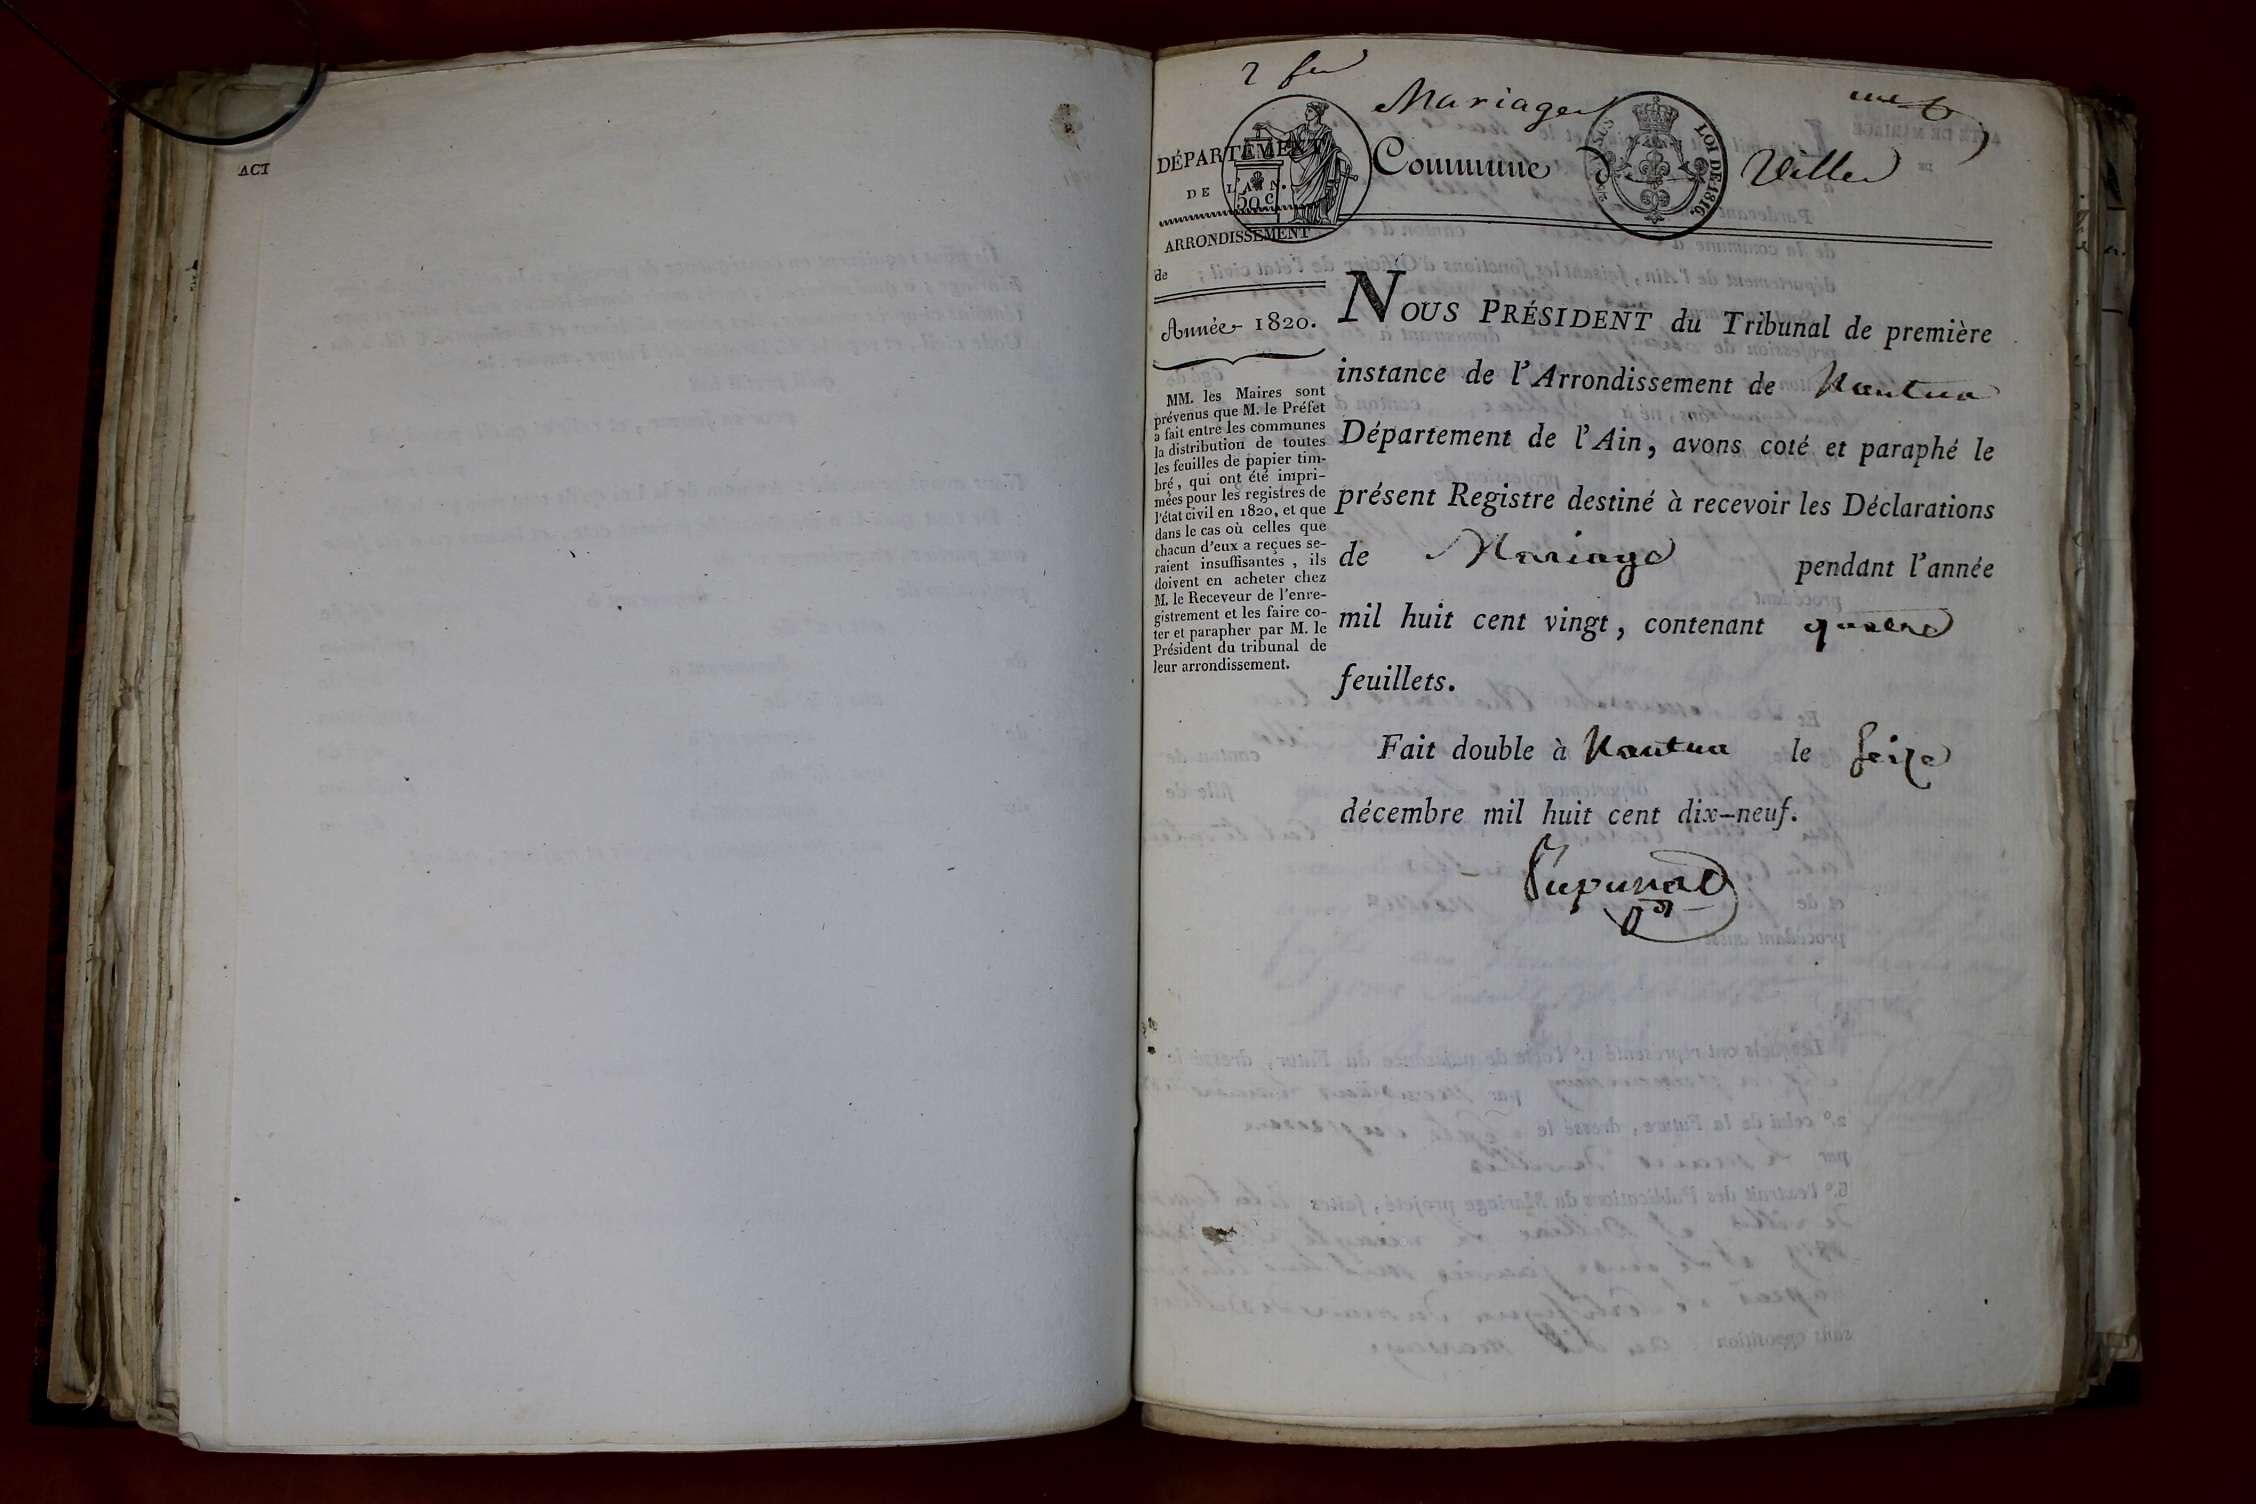 ACT
2 feu
Mariages
DÉPARTEMENT
DE L'AIN.
50 c.
Commune de Villes
LOI DE 1816.
ARRONDISSEMENT
de
Année 1820.
MM. les Maires sont
prévenus que M. le Préfet
a fait entre les communes
la distribution de toutes
les feuilles de papier tim-
bré, qui ont été impri-
mées pour les registres de
l'état civil en 1820, et que
dans le cas où celles que
chacun d'eux a reçues se-
raient insuffisantes, ils
doivent en acheter chez
M. le Receveur de l'enre-
gistrement et les faire co-
ter et parapher par M. le
Président du tribunal de
leur arrondissement.
NOUS PRÉSIDENT du Tribunal de première
instance de l'Arrondissement de Nantua
Département de l'Ain, avons coté et paraphé le
présent Registre destiné à recevoir les Déclarations
de Mariage pendant l'année
mil huit cent vingt, contenant quatre
feuillets.
Fait double à Nantua le seize
décembre mil huit cent dix-neuf.